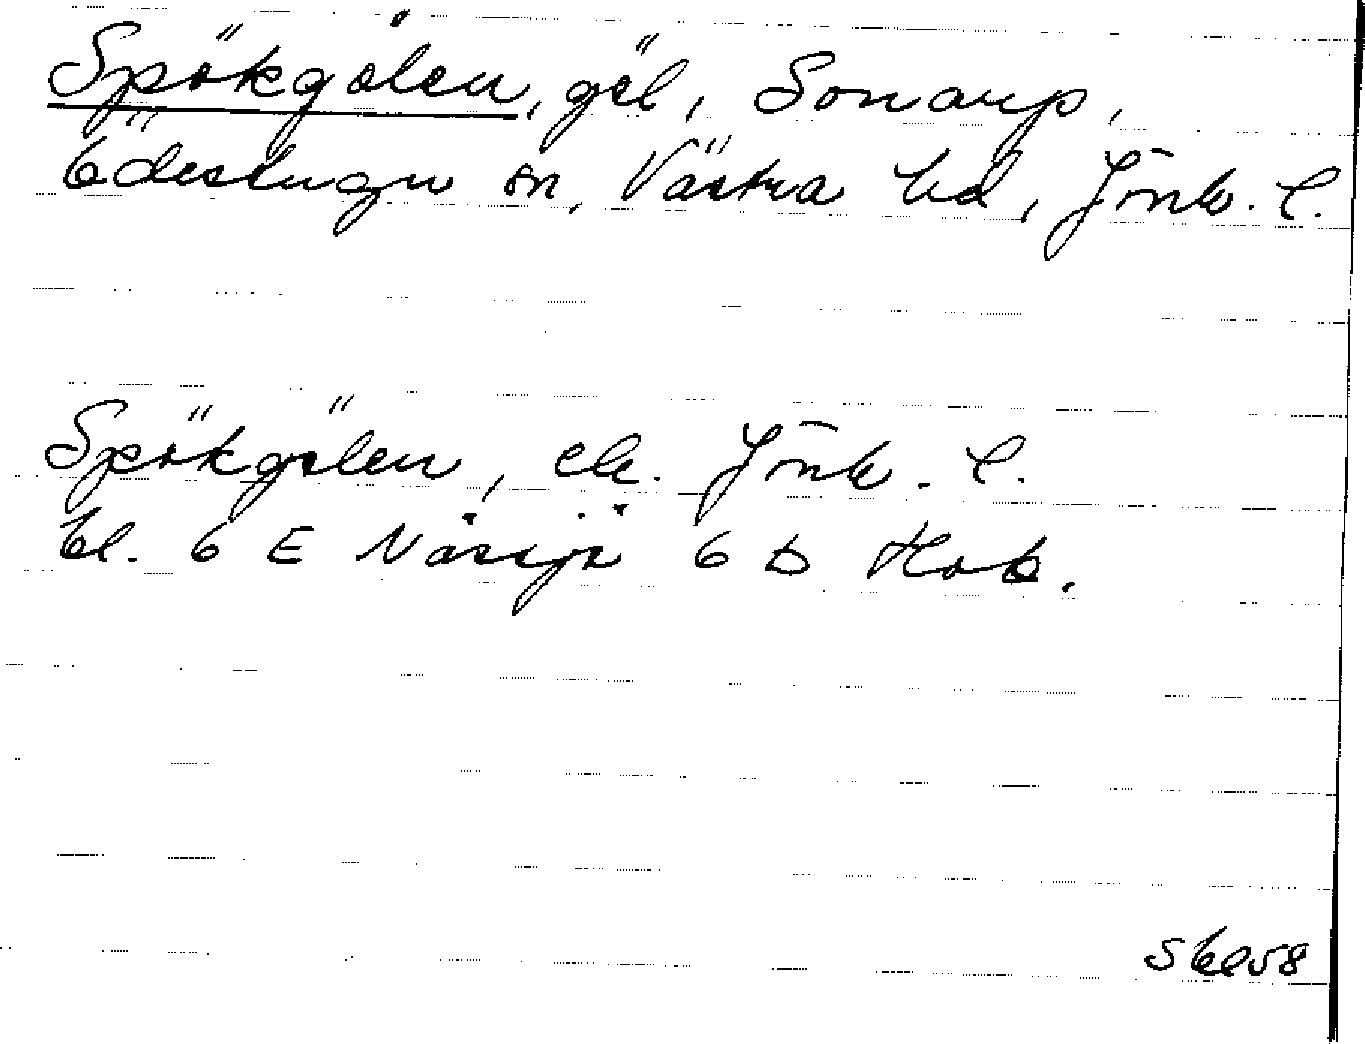 Spökgölen, göl, Sonarp,
Ödestugu sn, Västra hd, Jönk. l.
Spökgölen, ek. Jönk. l.
bl. 6 E Nässjö 6 D Hok.